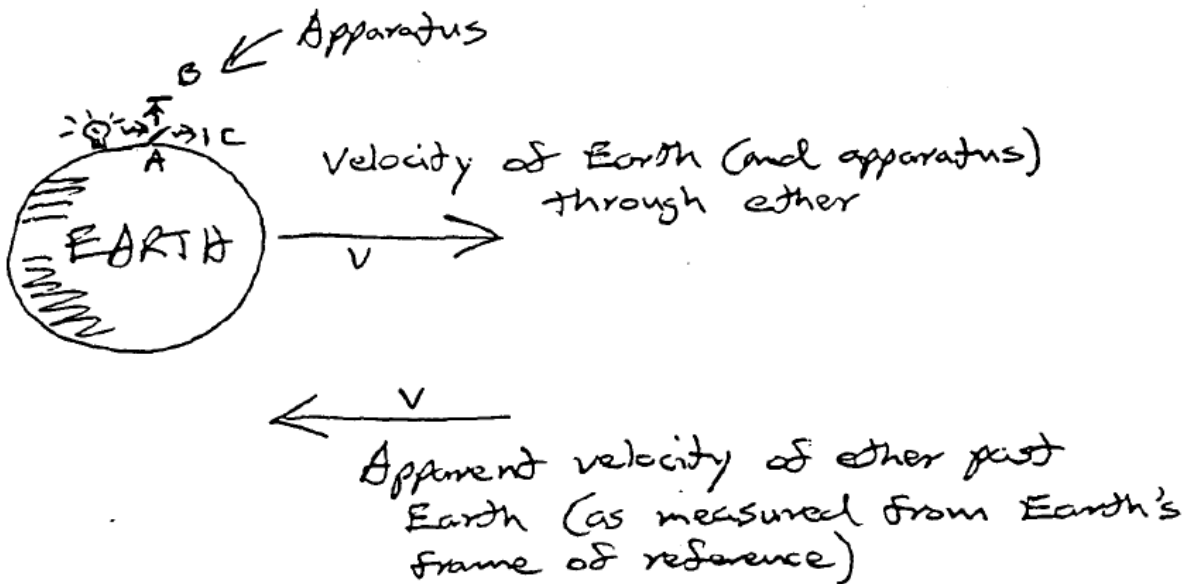 Apparatus
B
C
A
Velocity of Earth (and apparatus)
through ether
EARTH
V
V
Apparent velocity of ether past
Earth (as measured from Earth's
frame of reference)